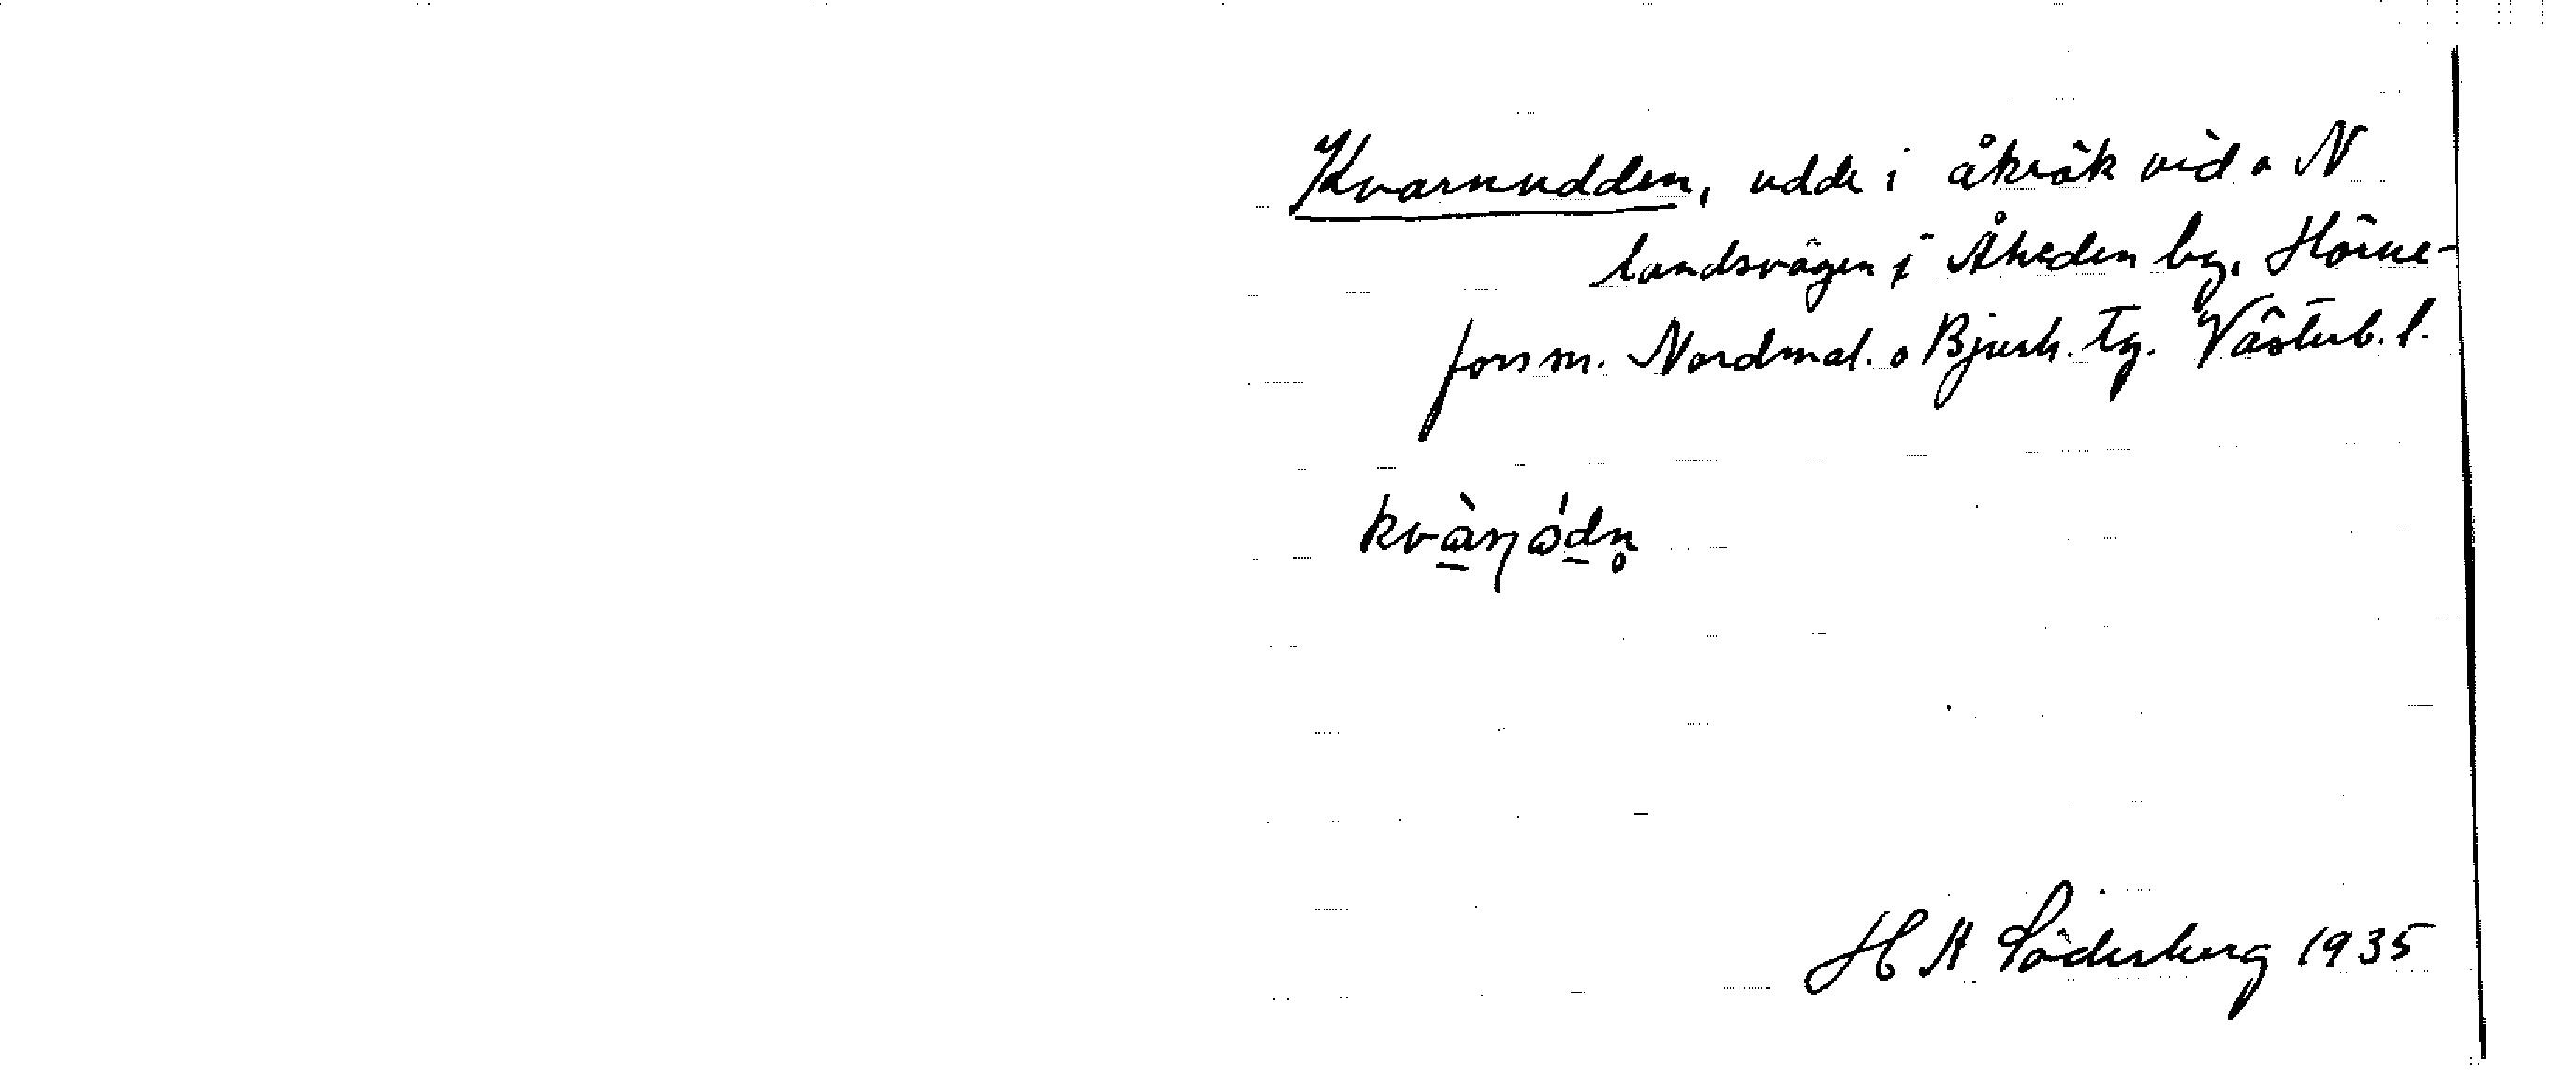 Kvarnudden, udde i åkrök vid o N
landsvägen i Åheden by. Hörne-
fors sn. Nordmal. o Bjurh. tg. Västerb. l.
kvàŋódn̥
H A Söderberg 1935